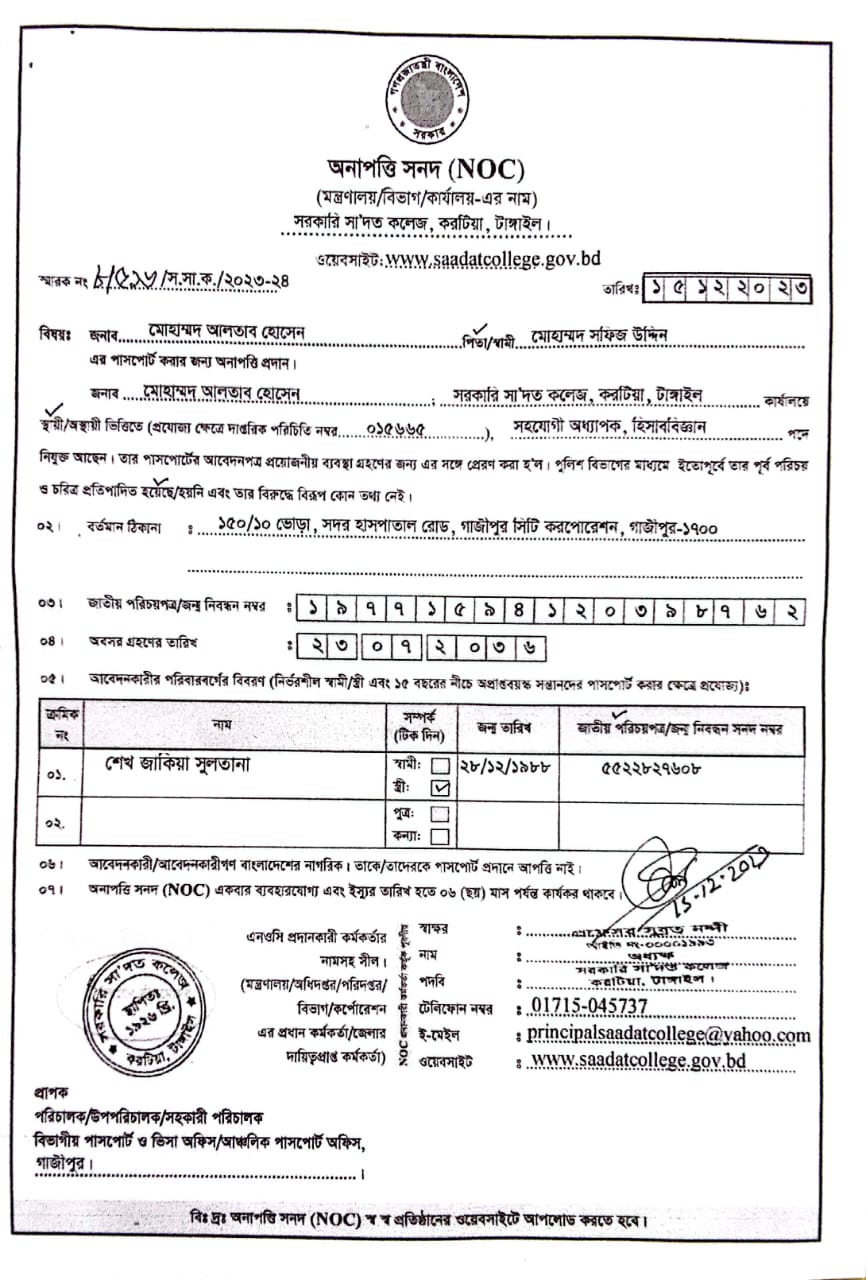 গণপ্রজাতন্ত্রী বাংলাদেশ
সরকার
অনাপত্তি সনদ (NOC)
(মন্ত্রণালয়/বিভাগ/কার্যালয়-এর নাম)
সরকারি সা'দত কলেজ, করটিয়া, টাঙ্গাইল।
ওয়েবসাইট: www.saadatcollege.gov.bd
স্মারক নং /স.সা.ক./২০২৩-২৪
তারিখঃ ১৫১২২০২৩
বিষয়ঃ জনাব মোহাম্মদ আলতাব হোসেন পিতা/স্বামী মোহাম্মদ সফিজ উদ্দিন
এর পাসপোর্ট করার জন্য অনাপত্তি প্রদান।
জনাব মোহাম্মদ আলতাব হোসেন ; সরকারি সা'দত কলেজ, করটিয়া, টাঙ্গাইল কার্যালয়ে
স্থায়ী/অস্থায়ী ভিত্তিতে (প্রযোজ্য ক্ষেত্রে দাপ্তরিক পরিচিতি নম্বর ০১৫৬৬৫), সহযোগী অধ্যাপক, হিসাববিজ্ঞান পদে
নিযুক্ত আছেন। তার পাসপোর্টের আবেদনপত্র প্রয়োজনীয় ব্যবস্থা গ্রহণের জন্য এর সঙ্গে প্রেরণ করা হ'ল। পুলিশ বিভাগের মাধ্যমে ইতোপূর্বে তার পূর্ব পরিচয়
ও চরিত্র প্রতিপাদিত হয়েছে/হয়নি এবং তার বিরুদ্ধে বিরূপ কোন তথ্য নেই।
০২। বর্তমান ঠিকানা : ১৫০/১০ ভোড়া, সদর হাসপাতাল রোড, গাজীপুর সিটি করপোরেশন, গাজীপুর-১৭০০
০৩। জাতীয় পরিচয়পত্র/জন্ম নিবন্ধন নম্বর : ১৯৭৭১৫৯৪১২০৩৯৮৭৬২
০৪। অবসর গ্রহণের তারিখ : ২৩০৭২০৩৬
০৫। আবেদনকারীর পরিবারবর্গের বিবরণ (নির্ভরশীল স্বামী/স্ত্রী এবং ১৫ বছরের নীচে অপ্রাপ্তবয়স্ক সন্তানদের পাসপোর্ট করার ক্ষেত্রে প্রযোজ্য):
ক্রমিক নং নাম সম্পর্ক (টিক দিন) জন্ম তারিখ জাতীয় পরিচয়পত্র/জন্ম নিবন্ধন সনদ নম্বর
০১. শেখ জাকিয়া সুলতানা স্বামী: ২৮/১২/১৯৮৮ ৫৫২২৮২৭৬০৮
স্ত্রী:
০২. পুত্র:
কন্যা:
০৬। আবেদনকারী/আবেদনকারীগণ বাংলাদেশের নাগরিক। তাকে/তাদেরকে পাসপোর্ট প্রদানে আপত্তি নাই।
০৭। অনাপত্তি সনদ (NOC) একবার ব্যবহারযোগ্য এবং ইস্যুর তারিখ হতে ০৬ (ছয়) মাস পর্যন্ত কার্যকর থাকবে।
15-12-2023
এনওসি প্রদানকারী কর্মকর্তার
নামসহ সীল।
(মন্ত্রণালয়/অধিদপ্তর/পরিদপ্তর/
বিভাগ/কর্পোরেশন
এর প্রধান কর্মকর্তা/জেলার
দায়িত্বপ্রাপ্ত কর্মকর্তা)
স্বাক্ষর :
নাম :
পদবি : অধ্যক্ষ
সরকারি সা'দত কলেজ
করটিয়া, টাঙ্গাইল।
টেলিফোন নম্বর : 01715-045737
ই-মেইল : principalsaadatcollege@yahoo.com
ওয়েবসাইট : www.saadatcollege.gov.bd
সরকারি সা'দত কলেজ
স্থাপিতঃ
১৯২৬ খ্রি.
করটিয়া, টাঙ্গাইল
প্রাপক
পরিচালক/উপপরিচালক/সহকারী পরিচালক
বিভাগীয় পাসপোর্ট ও ভিসা অফিস/আঞ্চলিক পাসপোর্ট অফিস,
গাজীপুর।
বিঃ দ্রঃ অনাপত্তি সনদ (NOC) স্ব স্ব প্রতিষ্ঠানের ওয়েবসাইটে আপলোড করতে হবে।